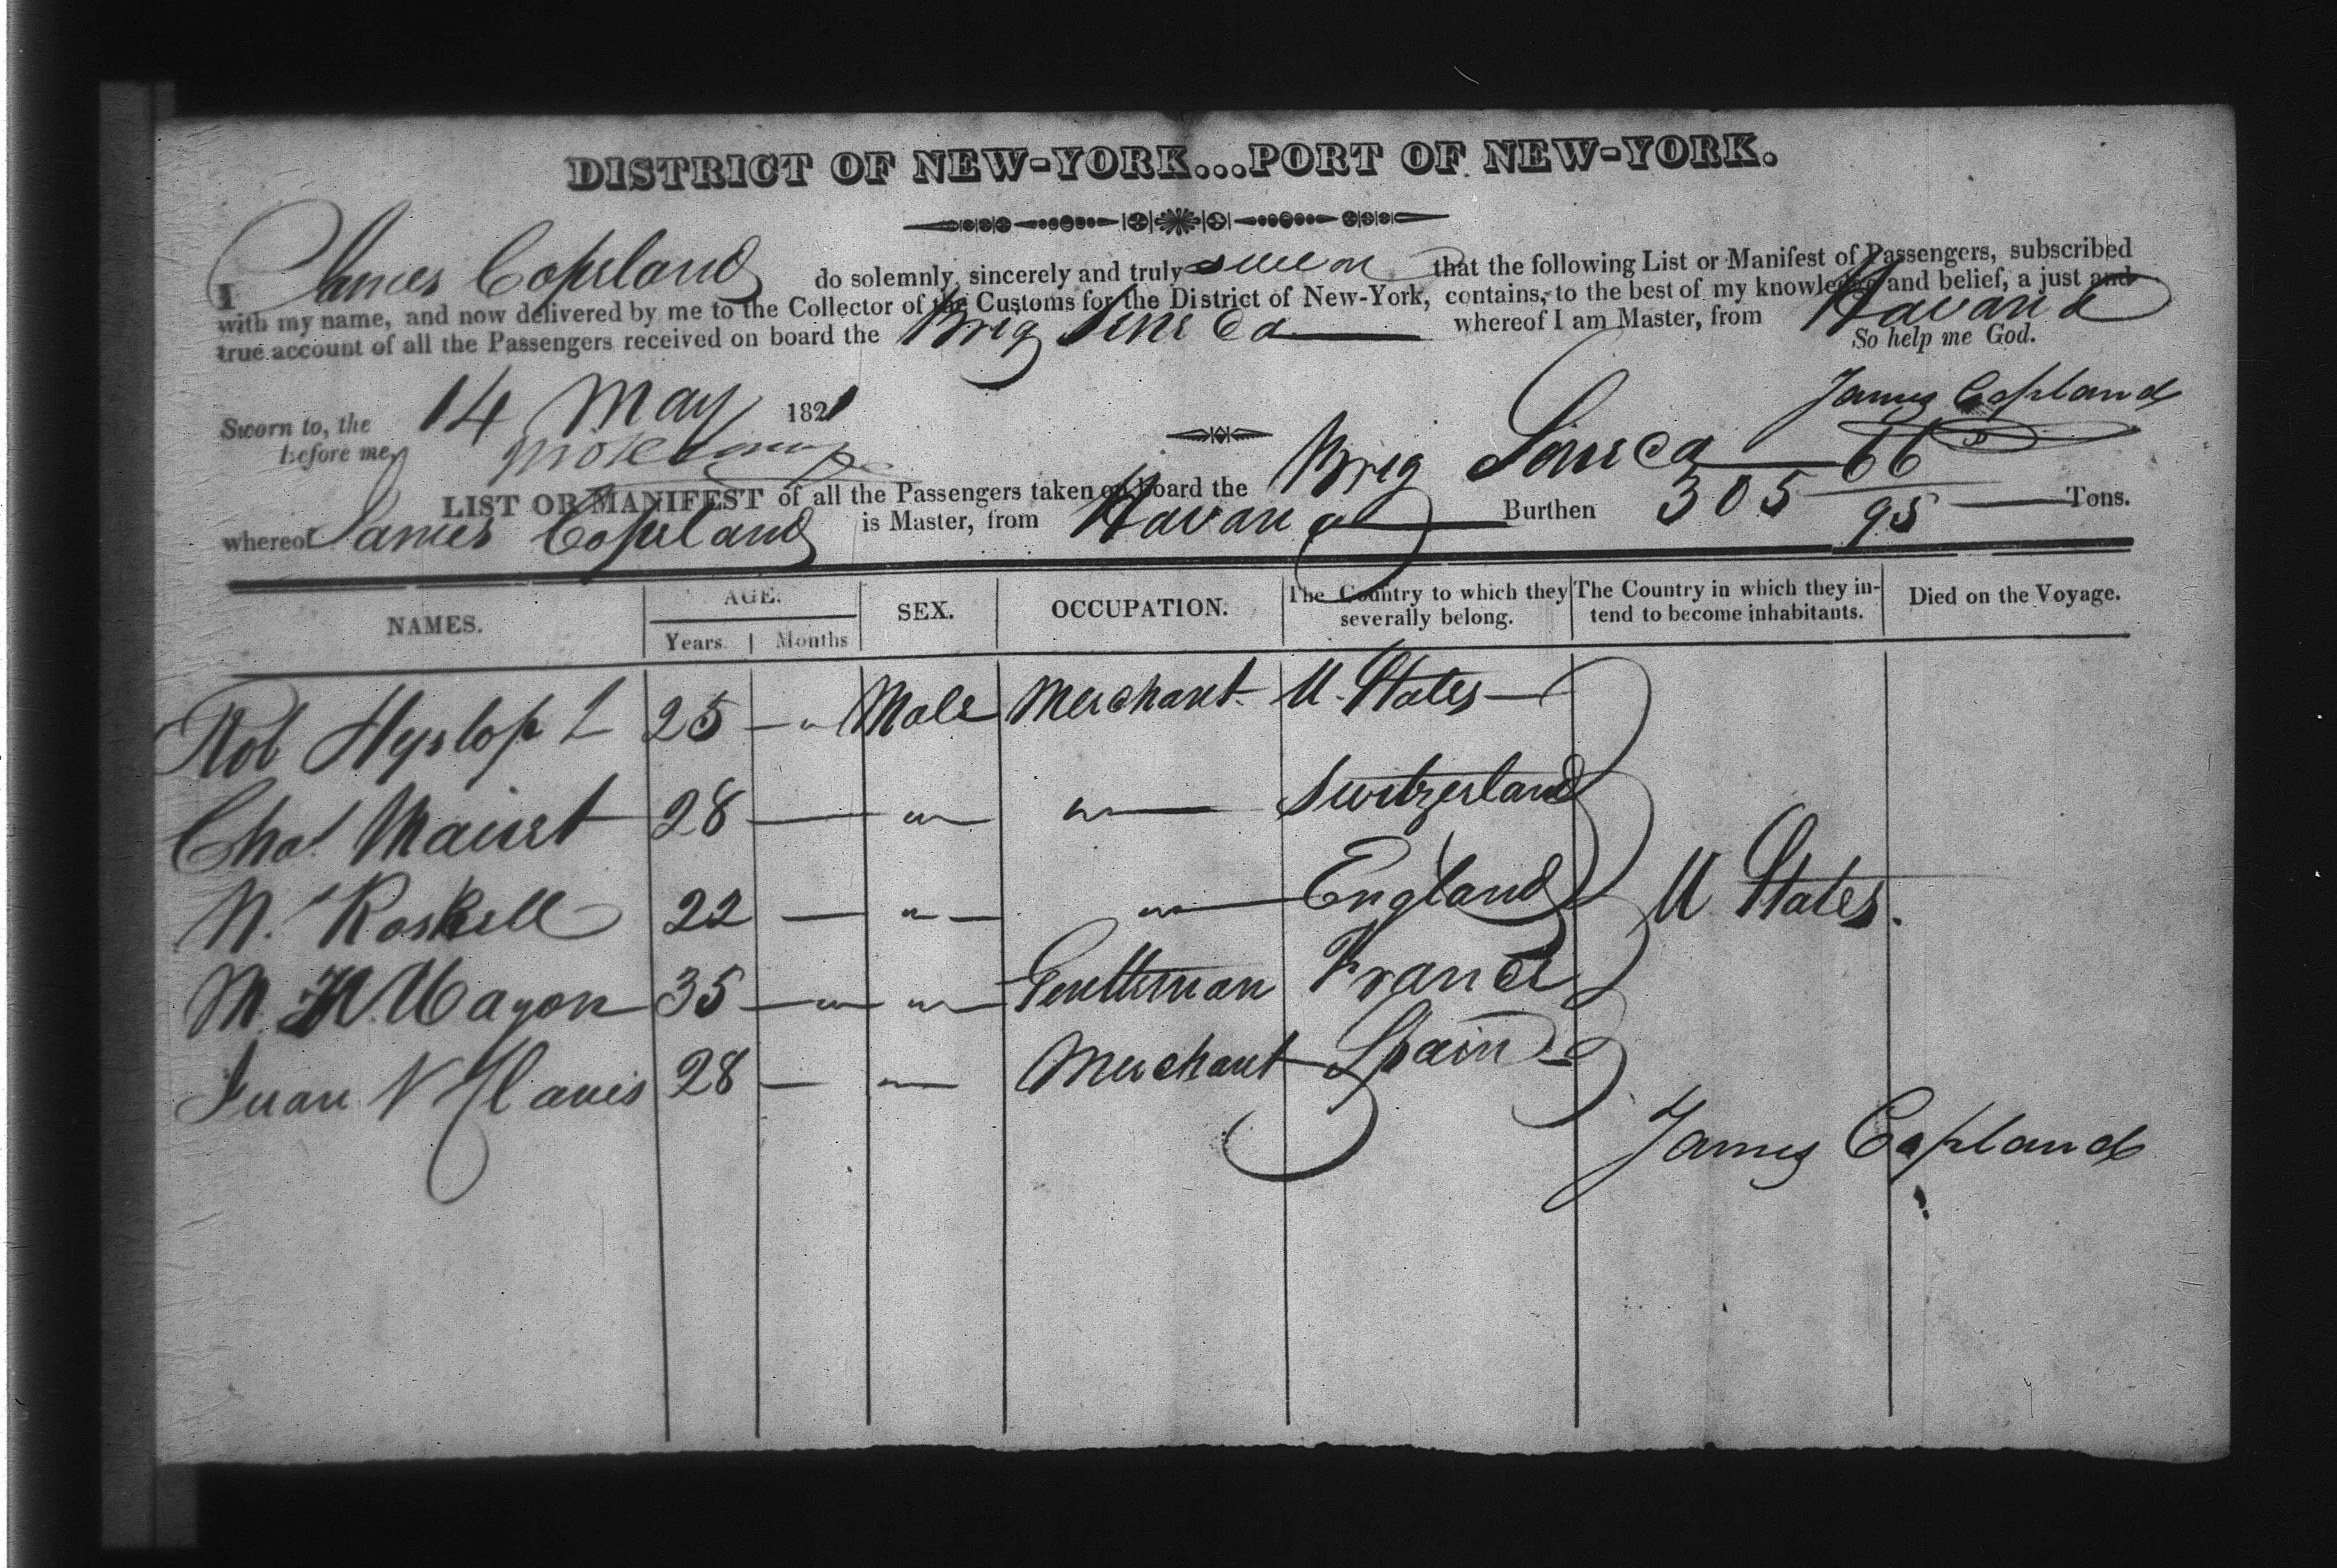 DISTRICT OF NEW-YORK...PORT OF NEW-YORK.
I James Copeland do solemnly, sincerely and truly swear that the following List or Manifest of Passengers, subscribed
with my name, and now delivered by me to the Collector of the Customs for the District of New-York, contains, to the best of my knowledge and belief, a just and
true account of all the Passengers received on board the Brig Seneca whereof I am Master, from Havana
So help me God.
Sworn to, the 14 May 1821 James Copland
before me,
LIST OR MANIFEST of all the Passengers taken on board the Brig Seneca
whereof James Copeland is Master, from Havana Burthen 305 66/95 Tons.
NAMES. AGE. Years Months SEX. OCCUPATION. The Country to which they severally belong. The Country in which they intend to become inhabitants. Died on the Voyage.
Rob Hyslop 25 " Male Merchant U. States
Chas Mairet 28 " " Switzerland
W. Roskell 22 " " England U States.
M. 35 " " Gentleman France
Juan N 28 " Merchant Spain
James Copland